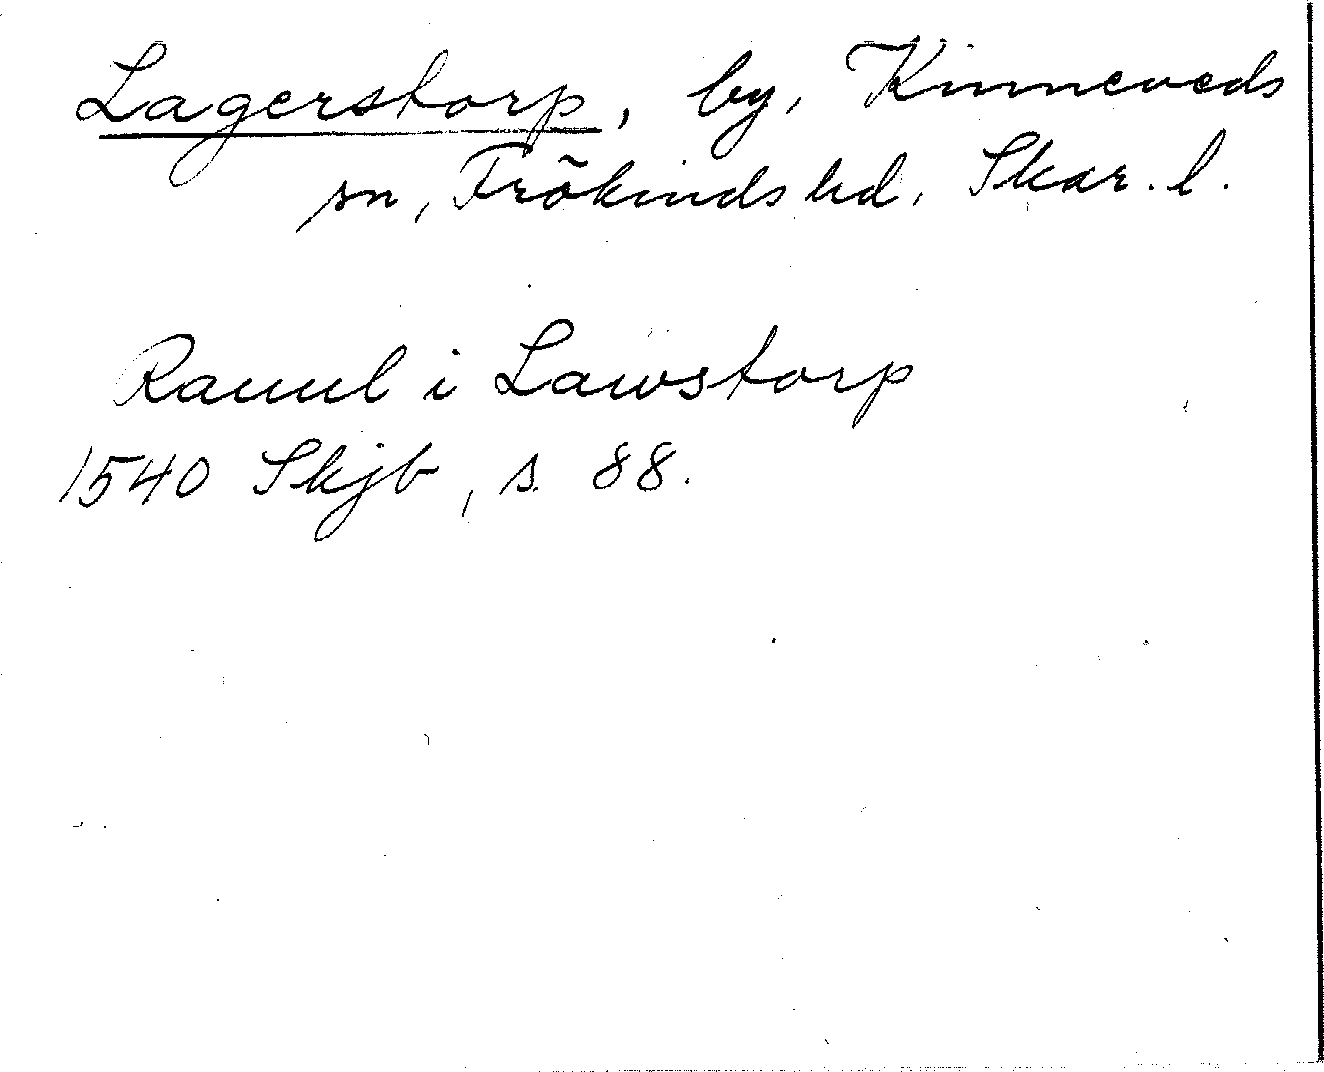 Lagerstorp, by, Kinneveds
sn, Frökinds hd, Skar. l.
Rauul i Lawstorp
1540 Skjb, s. 88.